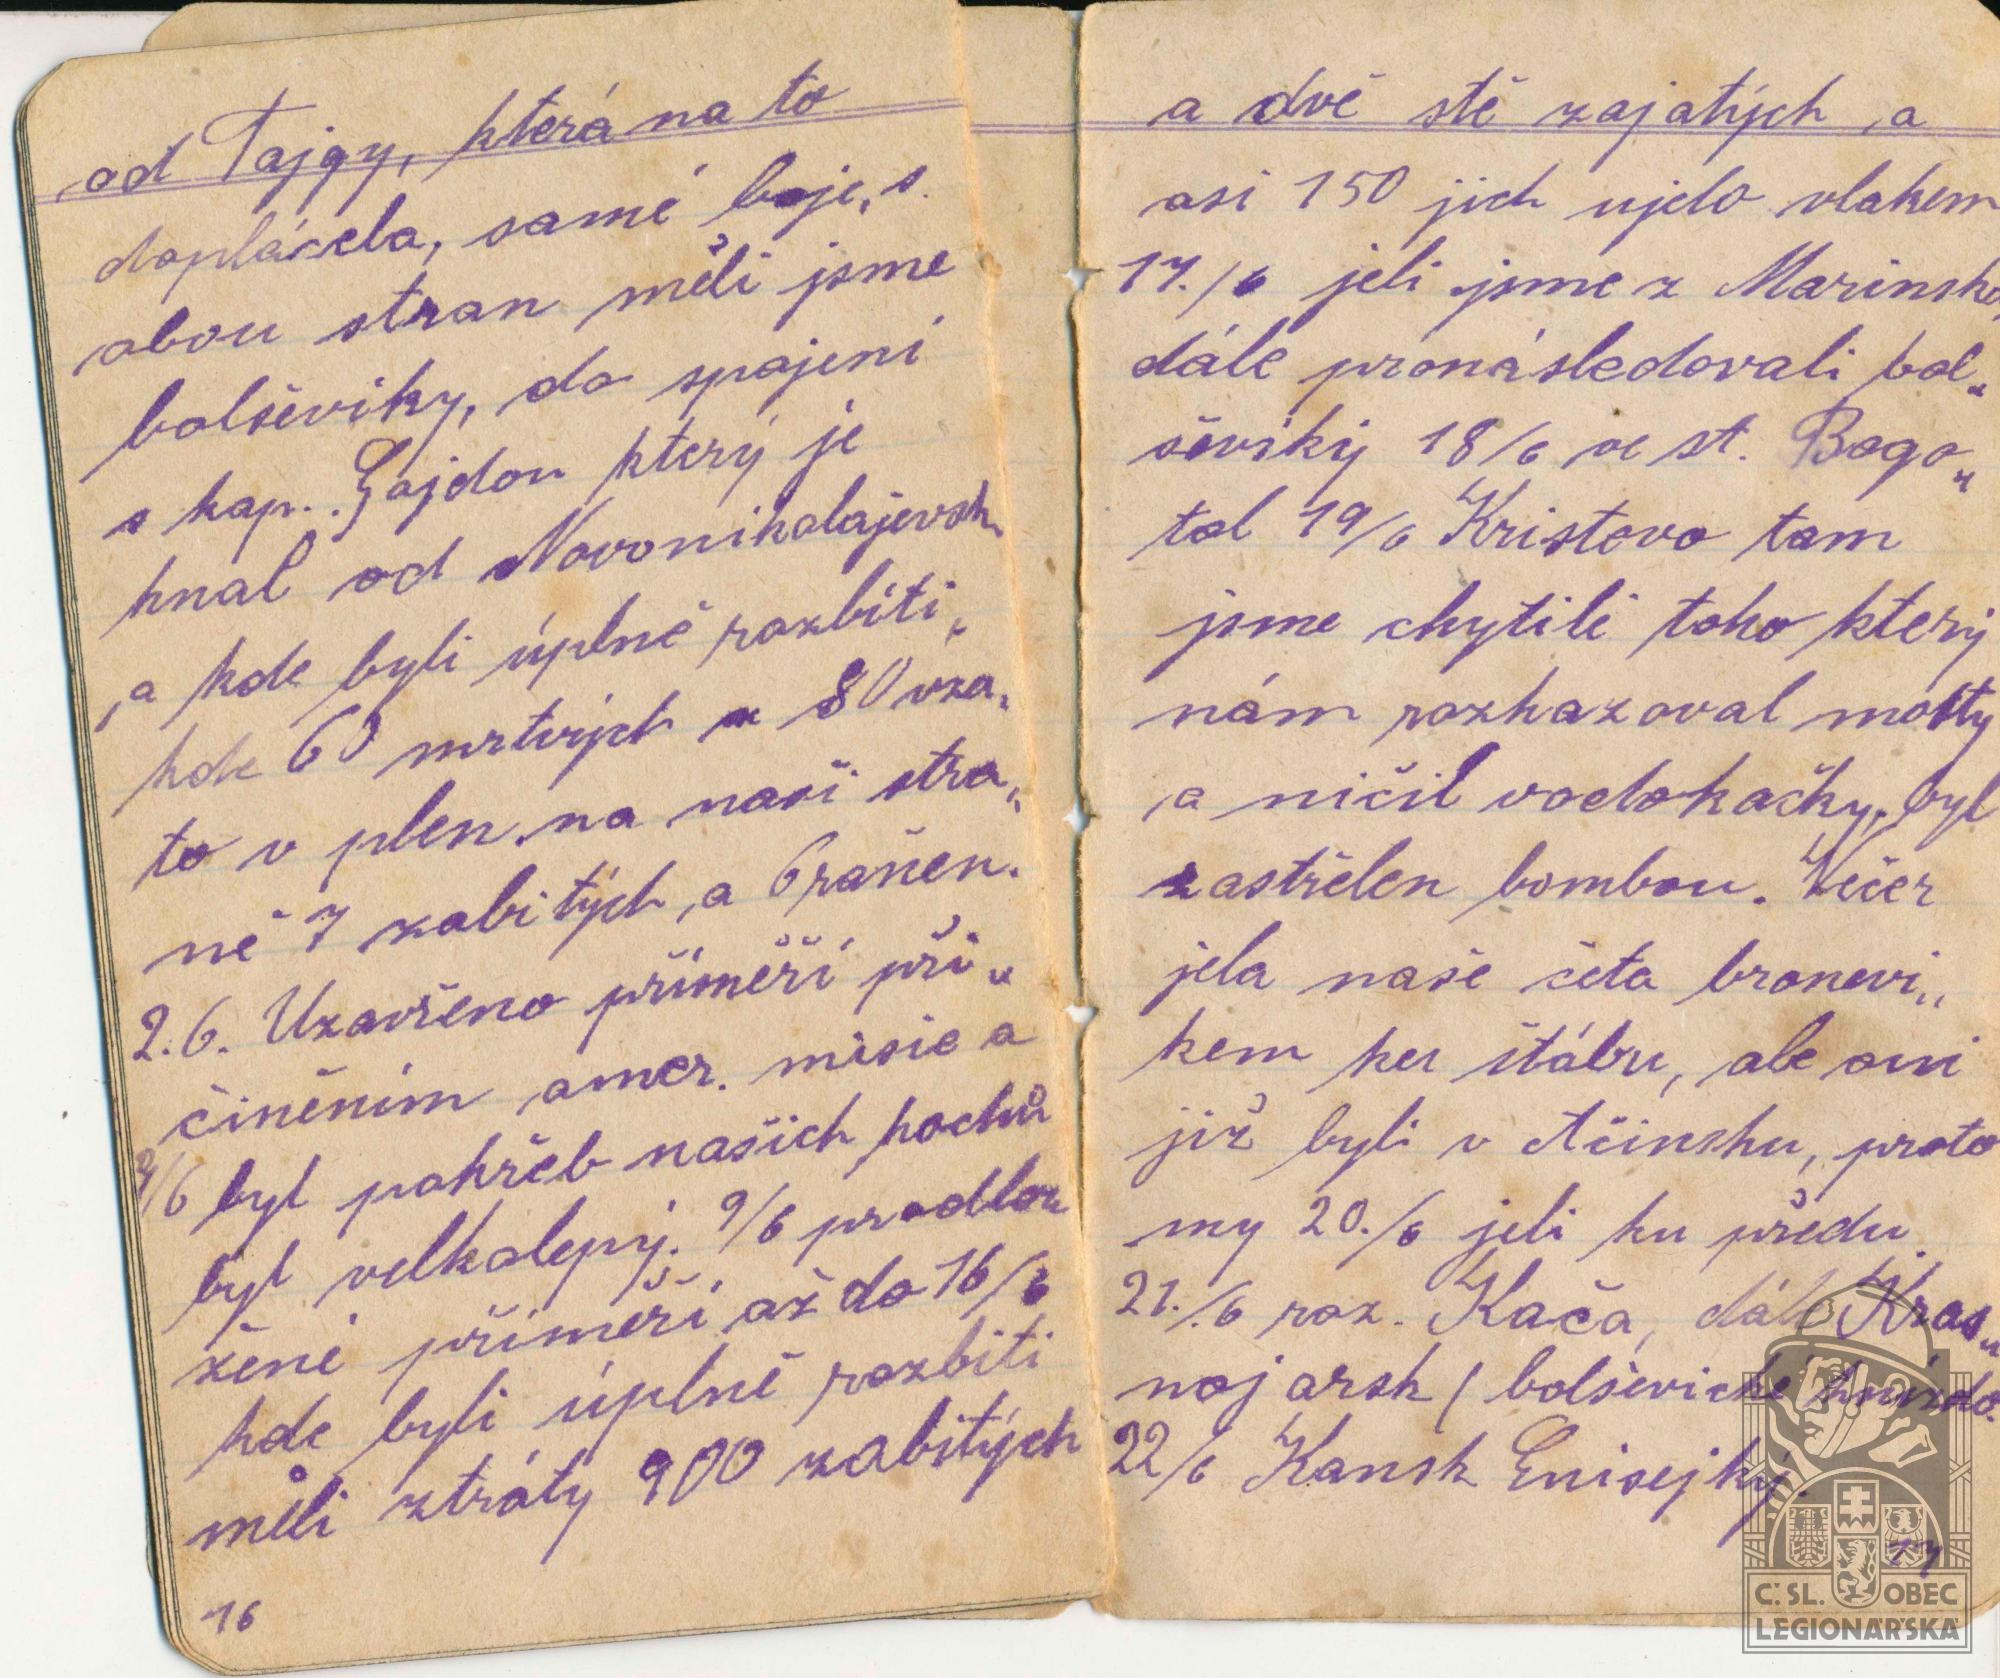 od Tajgy, která na to
doplácela, samé boje, s.
obou stran měli jsme
bolševiky, do spojení
s kap. Gajdou který je
hnal od Novonikolajevsk
a kde byli úplně rozbiti,
kde 60 mrtvých a 80 vza„
to v plen. na naší stra„
ně 7 zabitých, a 6 raněn.
2.6. Uzavřeno příměří při„
činěním amer. misie a
/6 byl pohřeb našich hochů
byl velkolepý. 9/6 prodlou
žené příměří až do 16/6
kde byli úplně rozbiti
měli ztráty 900 zabitých
16
a dvě stě zajatých, a
asi 150 jich ujelo vlakem
17./6 jeli jsme z Marinska,
dále pronásledovali bol„
ševiky 18/6 ve st. Bogo„
tol 19/6 Kristovo tam
jsme chytili toho který
nám rozhazoval mosty
a ničil vodokačky, byl
zastřelen bombou. Večer
jela naše četa bronevi„
kem ku štábu, ale oni
již byli v Ačinsku, proto
my 20./6 jeli ku předu
21./6 roz. Kača, dále Kras„
nojarsk / bolševické hnízdo.
22/6 Kansk Enisejký.
17
Č.SL. OBEC
LEGIONÁŘSKÁ